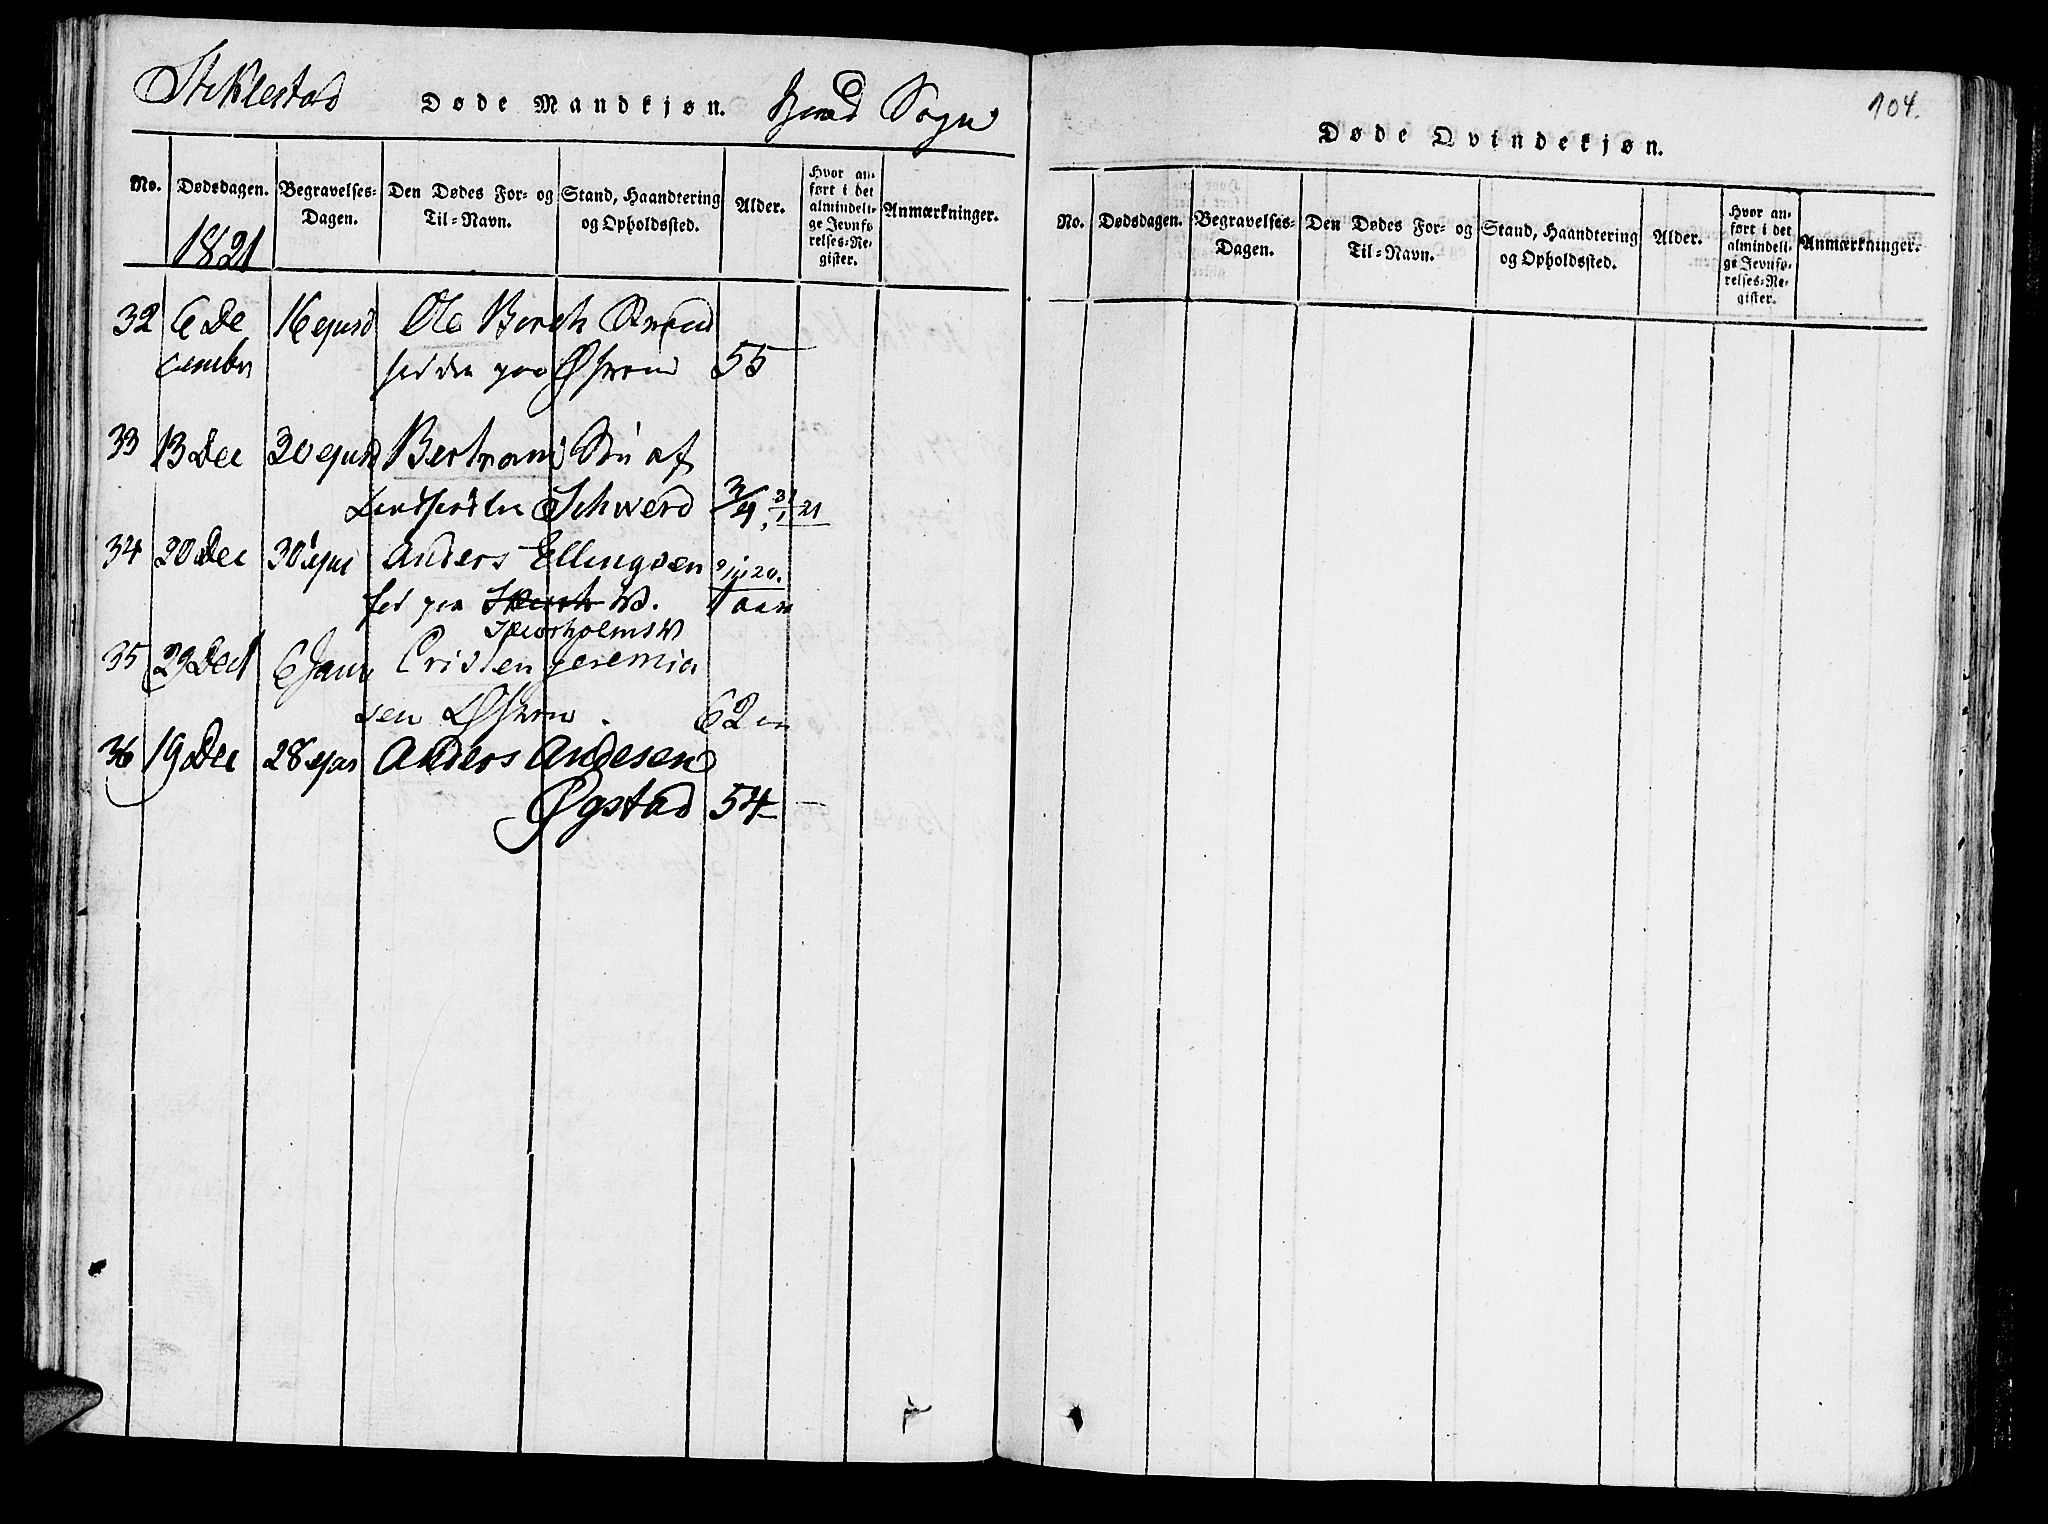 Stiklestad Døde Mandkjøn. Sogn
No. Dødsdagen. Begravelses-Dagen. Den Dødes For- og Til-Navn. Stand, Haandtering og Opholdssted. Alder. Hvor anført i det almindelige Jevnførelses-Register. Anmærkninger.
1821
32 6 De 16 ejusd Ole
cember paa 55
33 13 Dec 30 ejusd Bertram Søn af
Schwerd 3/4
34 20 Dec 30 ejus Anders Ellingsen
paa 1 aar
35 23 Dec 6 Janr Cristen jeremia
sen 62
36 19 Dec 28 ejus Anders Andesen
Øgstad 54
104.
Døde Qvindekjøn.
No. Dødsdagen. Begravelses-Dagen. Den Dødes For- og Til-Navn. Stand, Haandtering og Opholdssted. Alder. Hvor anført i det almindelige Jevnførelses-Register. Anmærkninger.